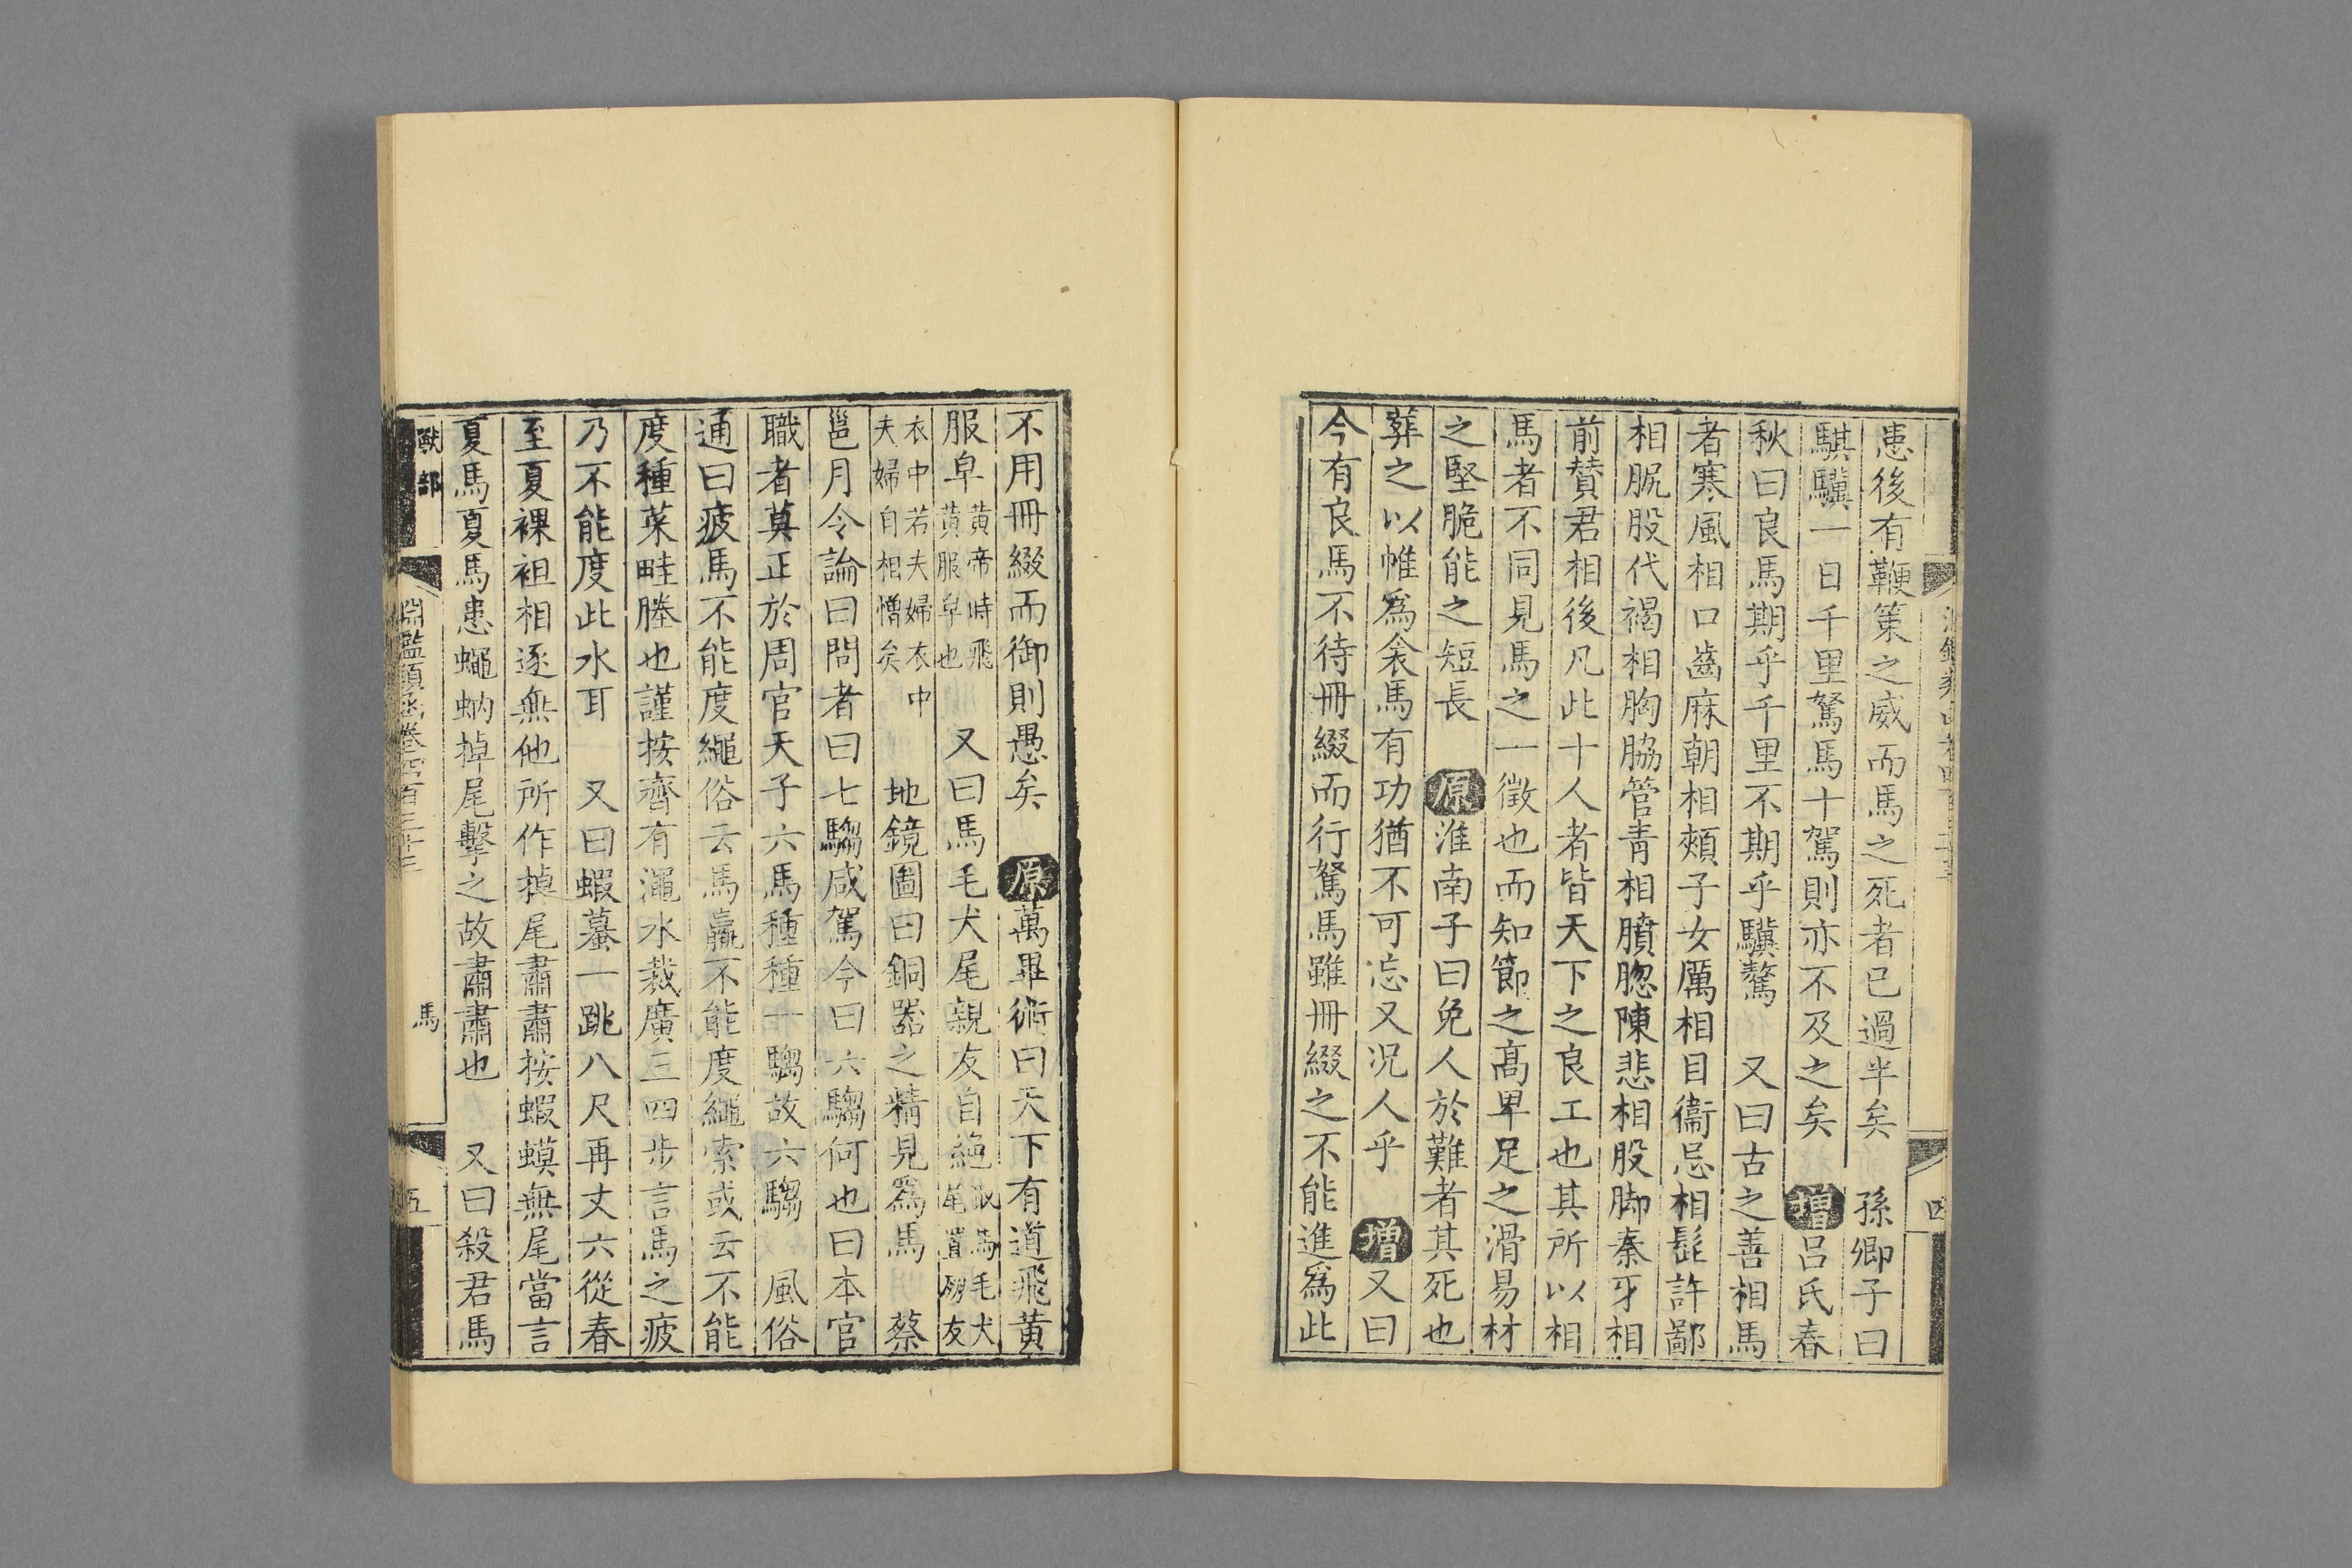 患後有鞭策之威而馬之死者已過半矣　孫卿子曰
騏驥一日千里駑馬十駕則亦不及之矣　增呂氏春
秋曰良馬期乎千里不期乎驥驁　又曰古之善相馬
者寒風相口齒麻朝相頰子女厲相目衞忌相髭許鄙
相脤股代褐相胸脇管青相膹脗陳悲相股脚秦牙相
前賛君相後凡此十人者皆天下之良工也其所以相
馬者不同見馬之一徵也而知節之高卑足之滑易材
之堅脆能之短長　原淮南子曰免人於難者其死也
葬之以帷爲衾馬有功猶不可忘又况人乎　增又曰
今有良馬不待冊綴而行駑馬雖冊綴之不能進爲此
不用冊綴而御則愚矣　原萬畢術曰天下有道飛黃
服皁黃帝時飛黃服皁也　又曰馬毛犬尾親友自絶取馬毛犬尾置朋友
衣中若夫婦衣中夫婦自相憎矣　地鏡圖曰銅器之精見爲馬　蔡
邕月令論曰問者曰七騶咸駕今曰六騶何也曰本官
職者莫正於周官天子六馬種種一騶故六騶　風俗
通曰疲馬不能度繩俗云馬羸不能度繩索或云不能
度種菜畦塍也謹按齊有澠水裁廣三四步言馬之疲
乃不能度此水耳　又曰蝦蟇一跳八尺再丈六從春
至夏裸袒相逐無他所作掉尾肅肅按蝦蟆無尾當言
夏馬夏馬患蠅蚋掉尾擊之故肅肅也　又曰殺君馬
獸部
淵鑑類函卷四百三十三
馬
五